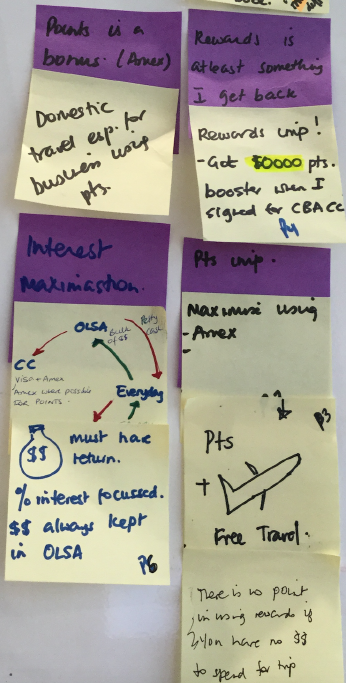 Points is a
bonus. (Amex)
Domestic
travel esp. for
business using
pts.
Rewards is
atleast something
I get back
Rewards imp!
- Got 50000 pts.
booster when I
signed for CBA CC
P4
Interest
Maximastion.
OLSA
Bulk
of $$
Petty
Cash
CC
VISA + Amex
Amex where possible
FOR POINTS.
Everyday
$$
must have
return.
% interest focussed.
$$ always kept
in OLSA
P6
Pts imp.
Maximise using
- Amex
-
P3
Pts
+
Free Travel.
There is no point
in using rewards if
you have no $$
to spend for trip